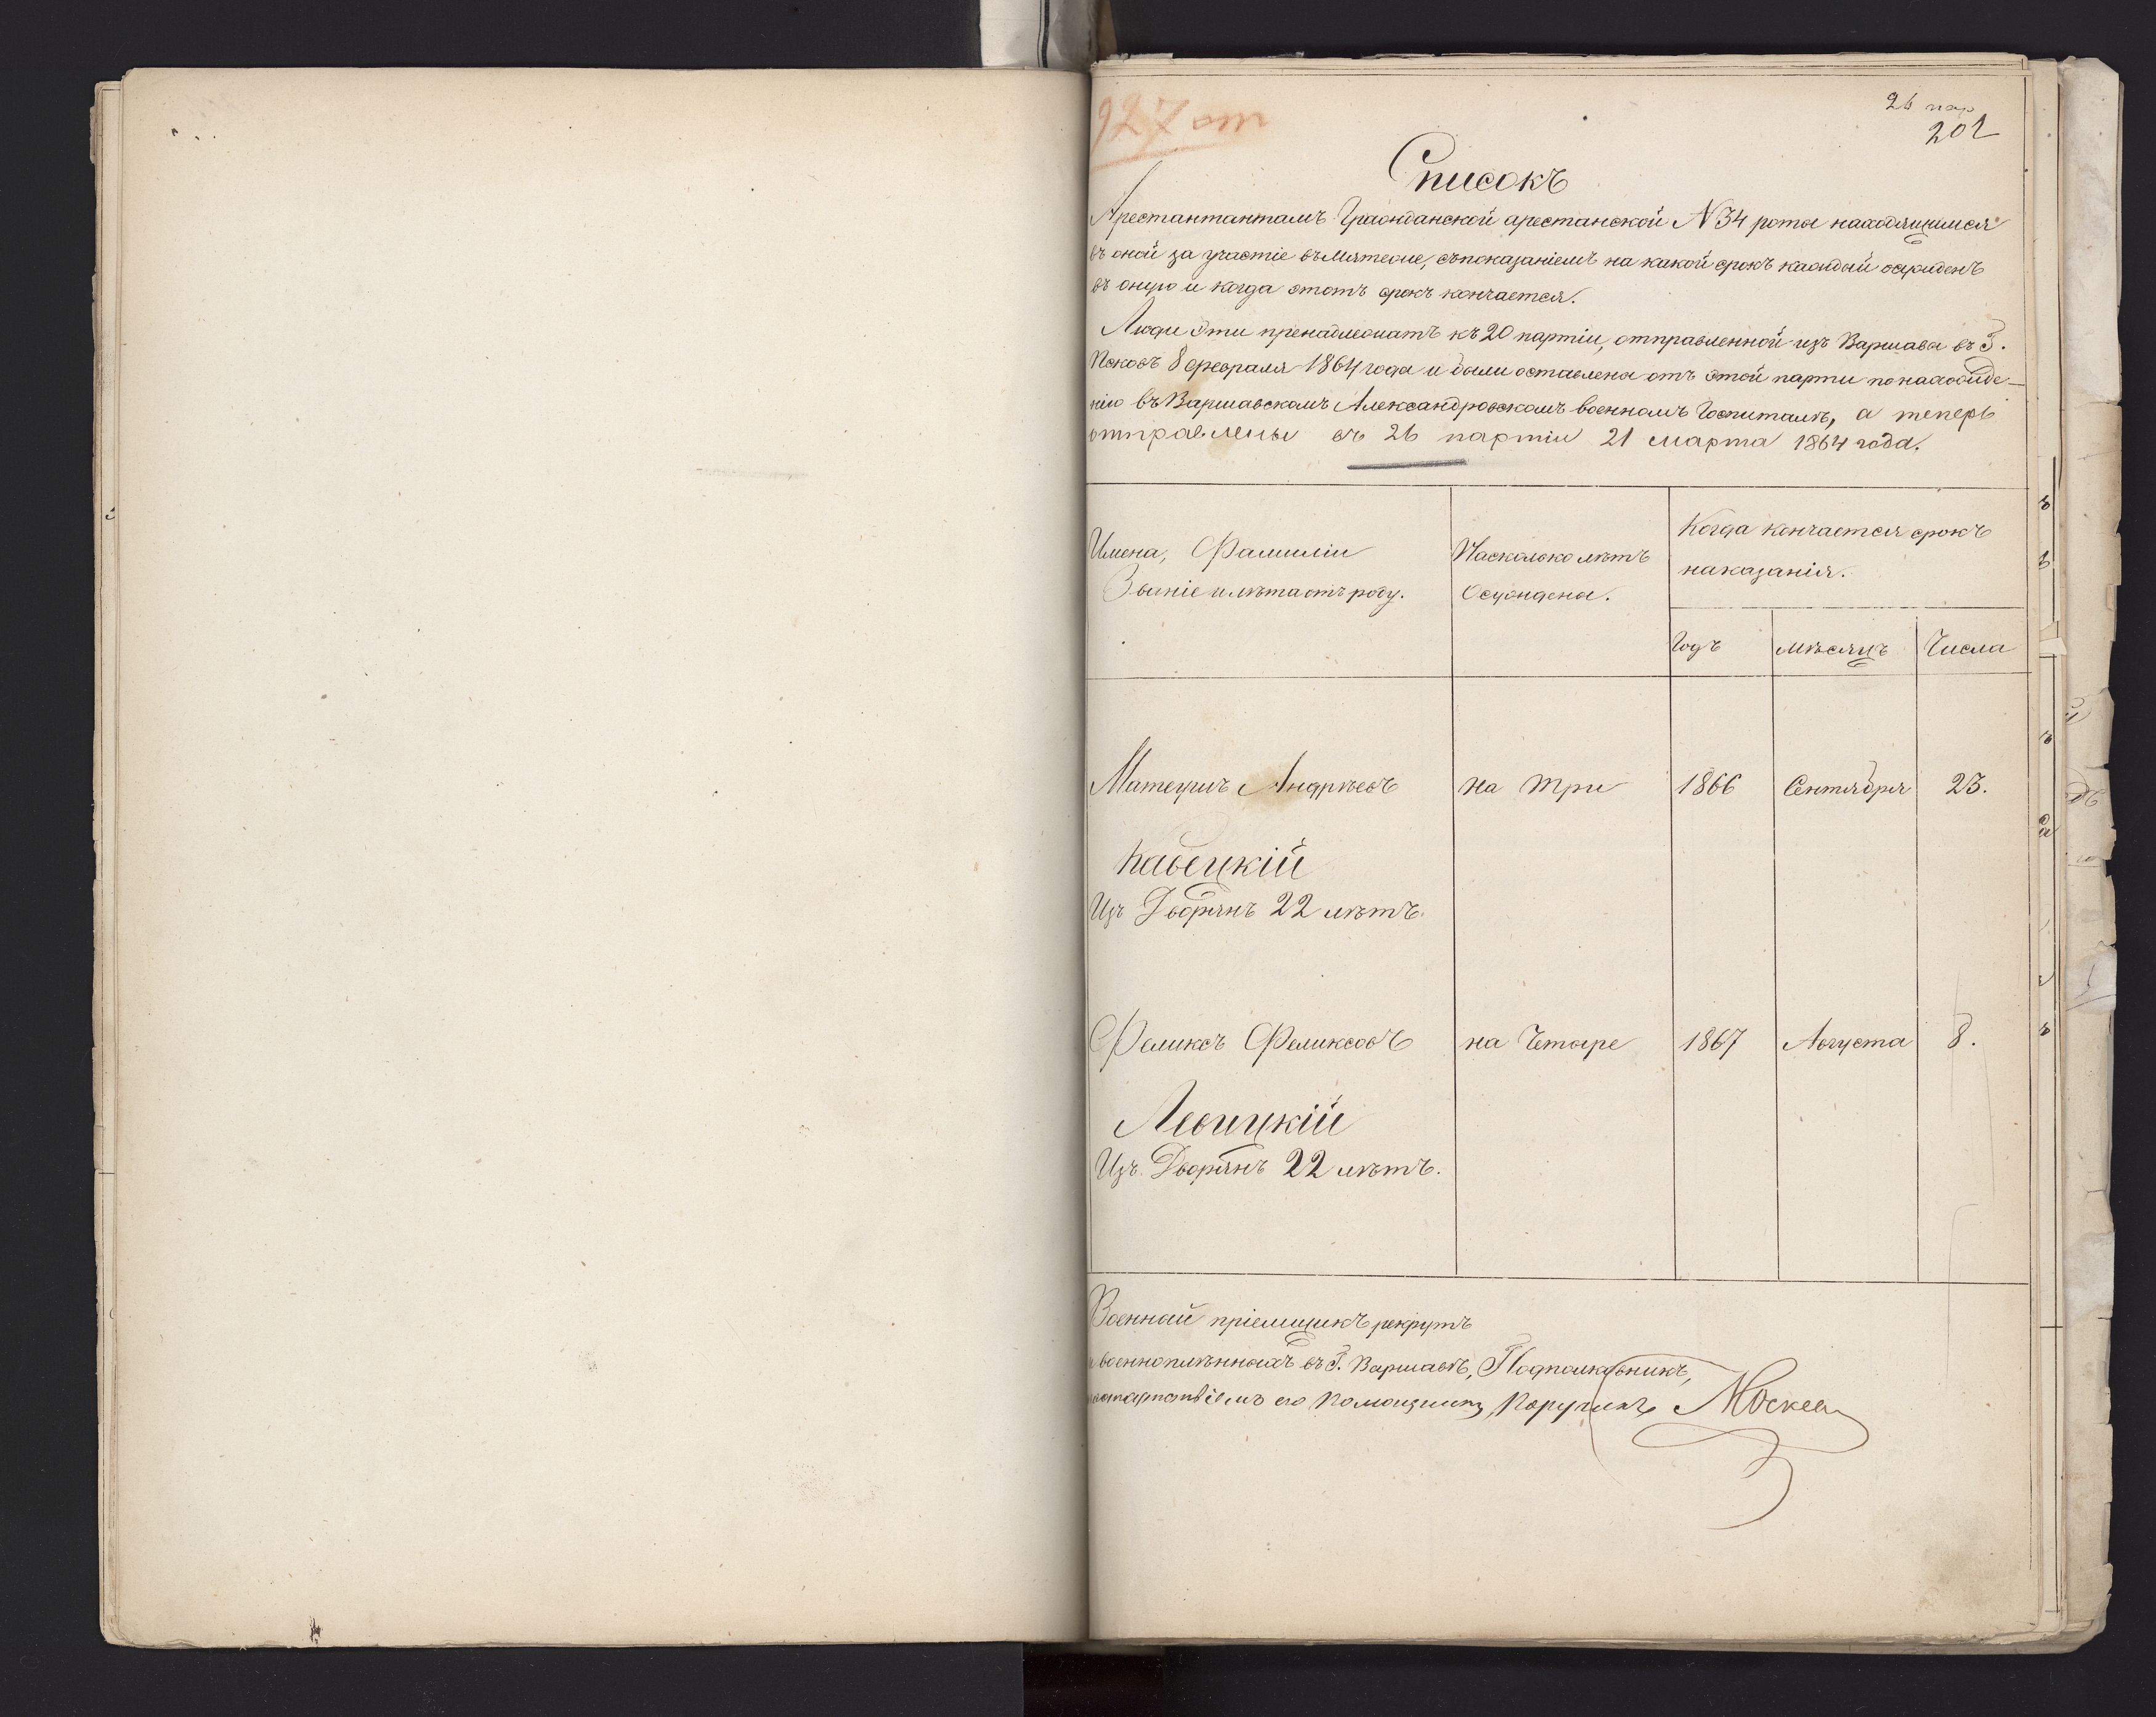 927 от
26 пар
202
Списокъ
Арестантантамъ Гражданской арестанской N 34 роты находящимся
въ оной за участіе въ мятеже, съ показаніемъ на какой срокъ каждый осужденъ
въ оную и когда этотъ срокъ кончается.
Люди эти пренадлежатъ къ 20 партіи, отправленной изъ Варшавы въ Г.
Псковъ 8 февраля 1864 года и были оставлены отъ этой парти по нахожде-
нію въ Варшавскомъ Александровскомъ военномъ Госпиталѣ, а теперь
отправлены въ 26 партіи 21 марта 1864 года.
Имена, Фамиліи
Званіе и лѣта отъ роду.
На сколько лѣтъ
Осуждены.
Когда кончается срокъ
наказанія.
Годъ Мѣсяцъ Числа
Матеушъ Андрѣевъ на три 1866 Сентября 23.
Кавецкій
Изъ Дворянъ 22 лѣтъ.
Феликсъ Феликсовъ на Четыре 1867 Августа 8.
Левицкій
Изъ Дворянъ 22 лѣтъ.
Военный пріемщикъ рекрутъ
и военноплѣнныхъ въ Г. Варшавѣ, Подполковникъ,
его Помощникъ, Поручикъ